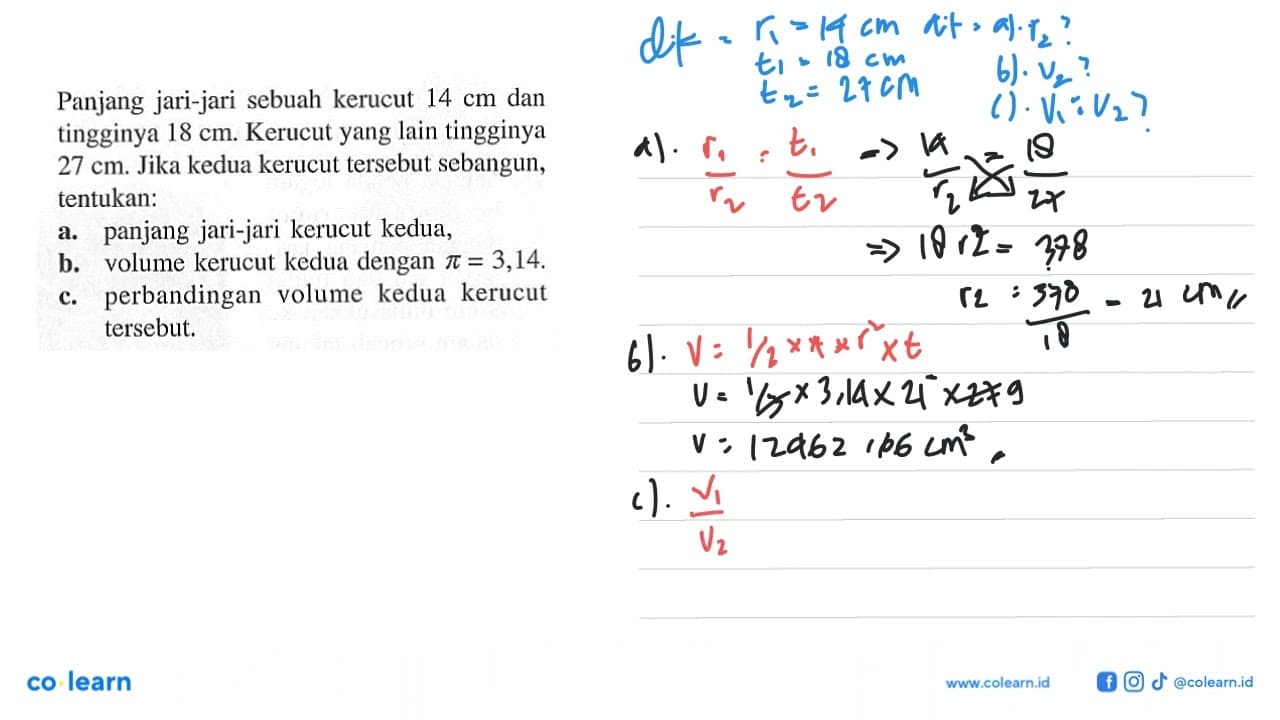 Panjang jari-jari sebuah kerucut 14 cm dan
tingginya 18 cm. Kerucut yang lain tingginya
27 cm. Jika kedua kerucut tersebut sebangun,
tentukan:
a. panjang jari-jari kerucut kedua,
b. volume kerucut kedua dengan π = 3,14.
c. perbandingan volume kedua kerucut
tersebut.
dik = r₁ = 14 cm dit = a). r₂?
t₁ = 18 cm b). V₂?
t₂ = 27 cm c). V₁ : V₂?
a). r₁/r₂ = t₁/t₂ => 14/r₂ = 18/27
=> 18 r2 = 378
r2 = 378/18 = 21 cm //
b). V = 1/3 × π × r² × t
V = 1/3 × 3,14 × 21² × 27 9
V = 12462,66 cm³.
c). V₁/V₂
co learn
www.colearn.id
@colearn.id